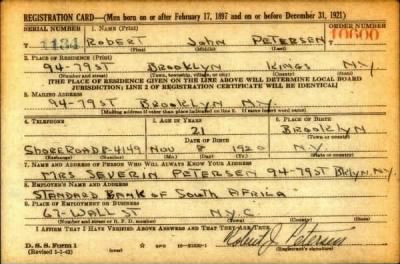 REGISTRATION CARD—(Men born on or after February 17, 1897 and on or before December 31, 1921)
SERIAL NUMBER 1. NAME (Print) ORDER NUMBER
1134 ROBERT JOHN PETERSEN 10600
(First) (Middle) (Last)
2. PLACE OF RESIDENCE (Print)
94-79ST BROOKLYN KINGS N.Y.
(Number and street) (Town, township, village, or city) (County) (State)
[THE PLACE OF RESIDENCE GIVEN ON THE LINE ABOVE WILL DETERMINE LOCAL BOARD
JURISDICTION; LINE 2 OF REGISTRATION CERTIFICATE WILL BE IDENTICAL]
3. MAILING ADDRESS
94-79ST BROOKLYN N.Y.
[Mailing address if other than place indicated on line 2. If same insert word same]
4. TELEPHONE 5. AGE IN YEARS 6. PLACE OF BIRTH
21 BROOKLYN
DATE OF BIRTH (Town or county)
SHOREROAD 8-4149 NOV 8 1920 N.Y.
(Exchange) (Number) (Mo.) (Day) (Yr.) (State or country)
7. NAME AND ADDRESS OF PERSON WHO WILL ALWAYS KNOW YOUR ADDRESS
MRS SEVERIN PETERSEN 94-79ST BKLYN. N.Y.
8. EMPLOYER'S NAME AND ADDRESS
STANDARD BANK OF SOUTH AFRICA
9. PLACE OF EMPLOYMENT OR BUSINESS
67-WALL ST N.Y.C
(Number and street or R. F. D. number) (Town) (County) (State)
I AFFIRM THAT I HAVE VERIFIED ABOVE ANSWERS AND THAT THEY ARE TRUE.
D. S. S. Form 1 Robert J. Petersen
(Revised 1-1-42) GPO (Registrant's signature)